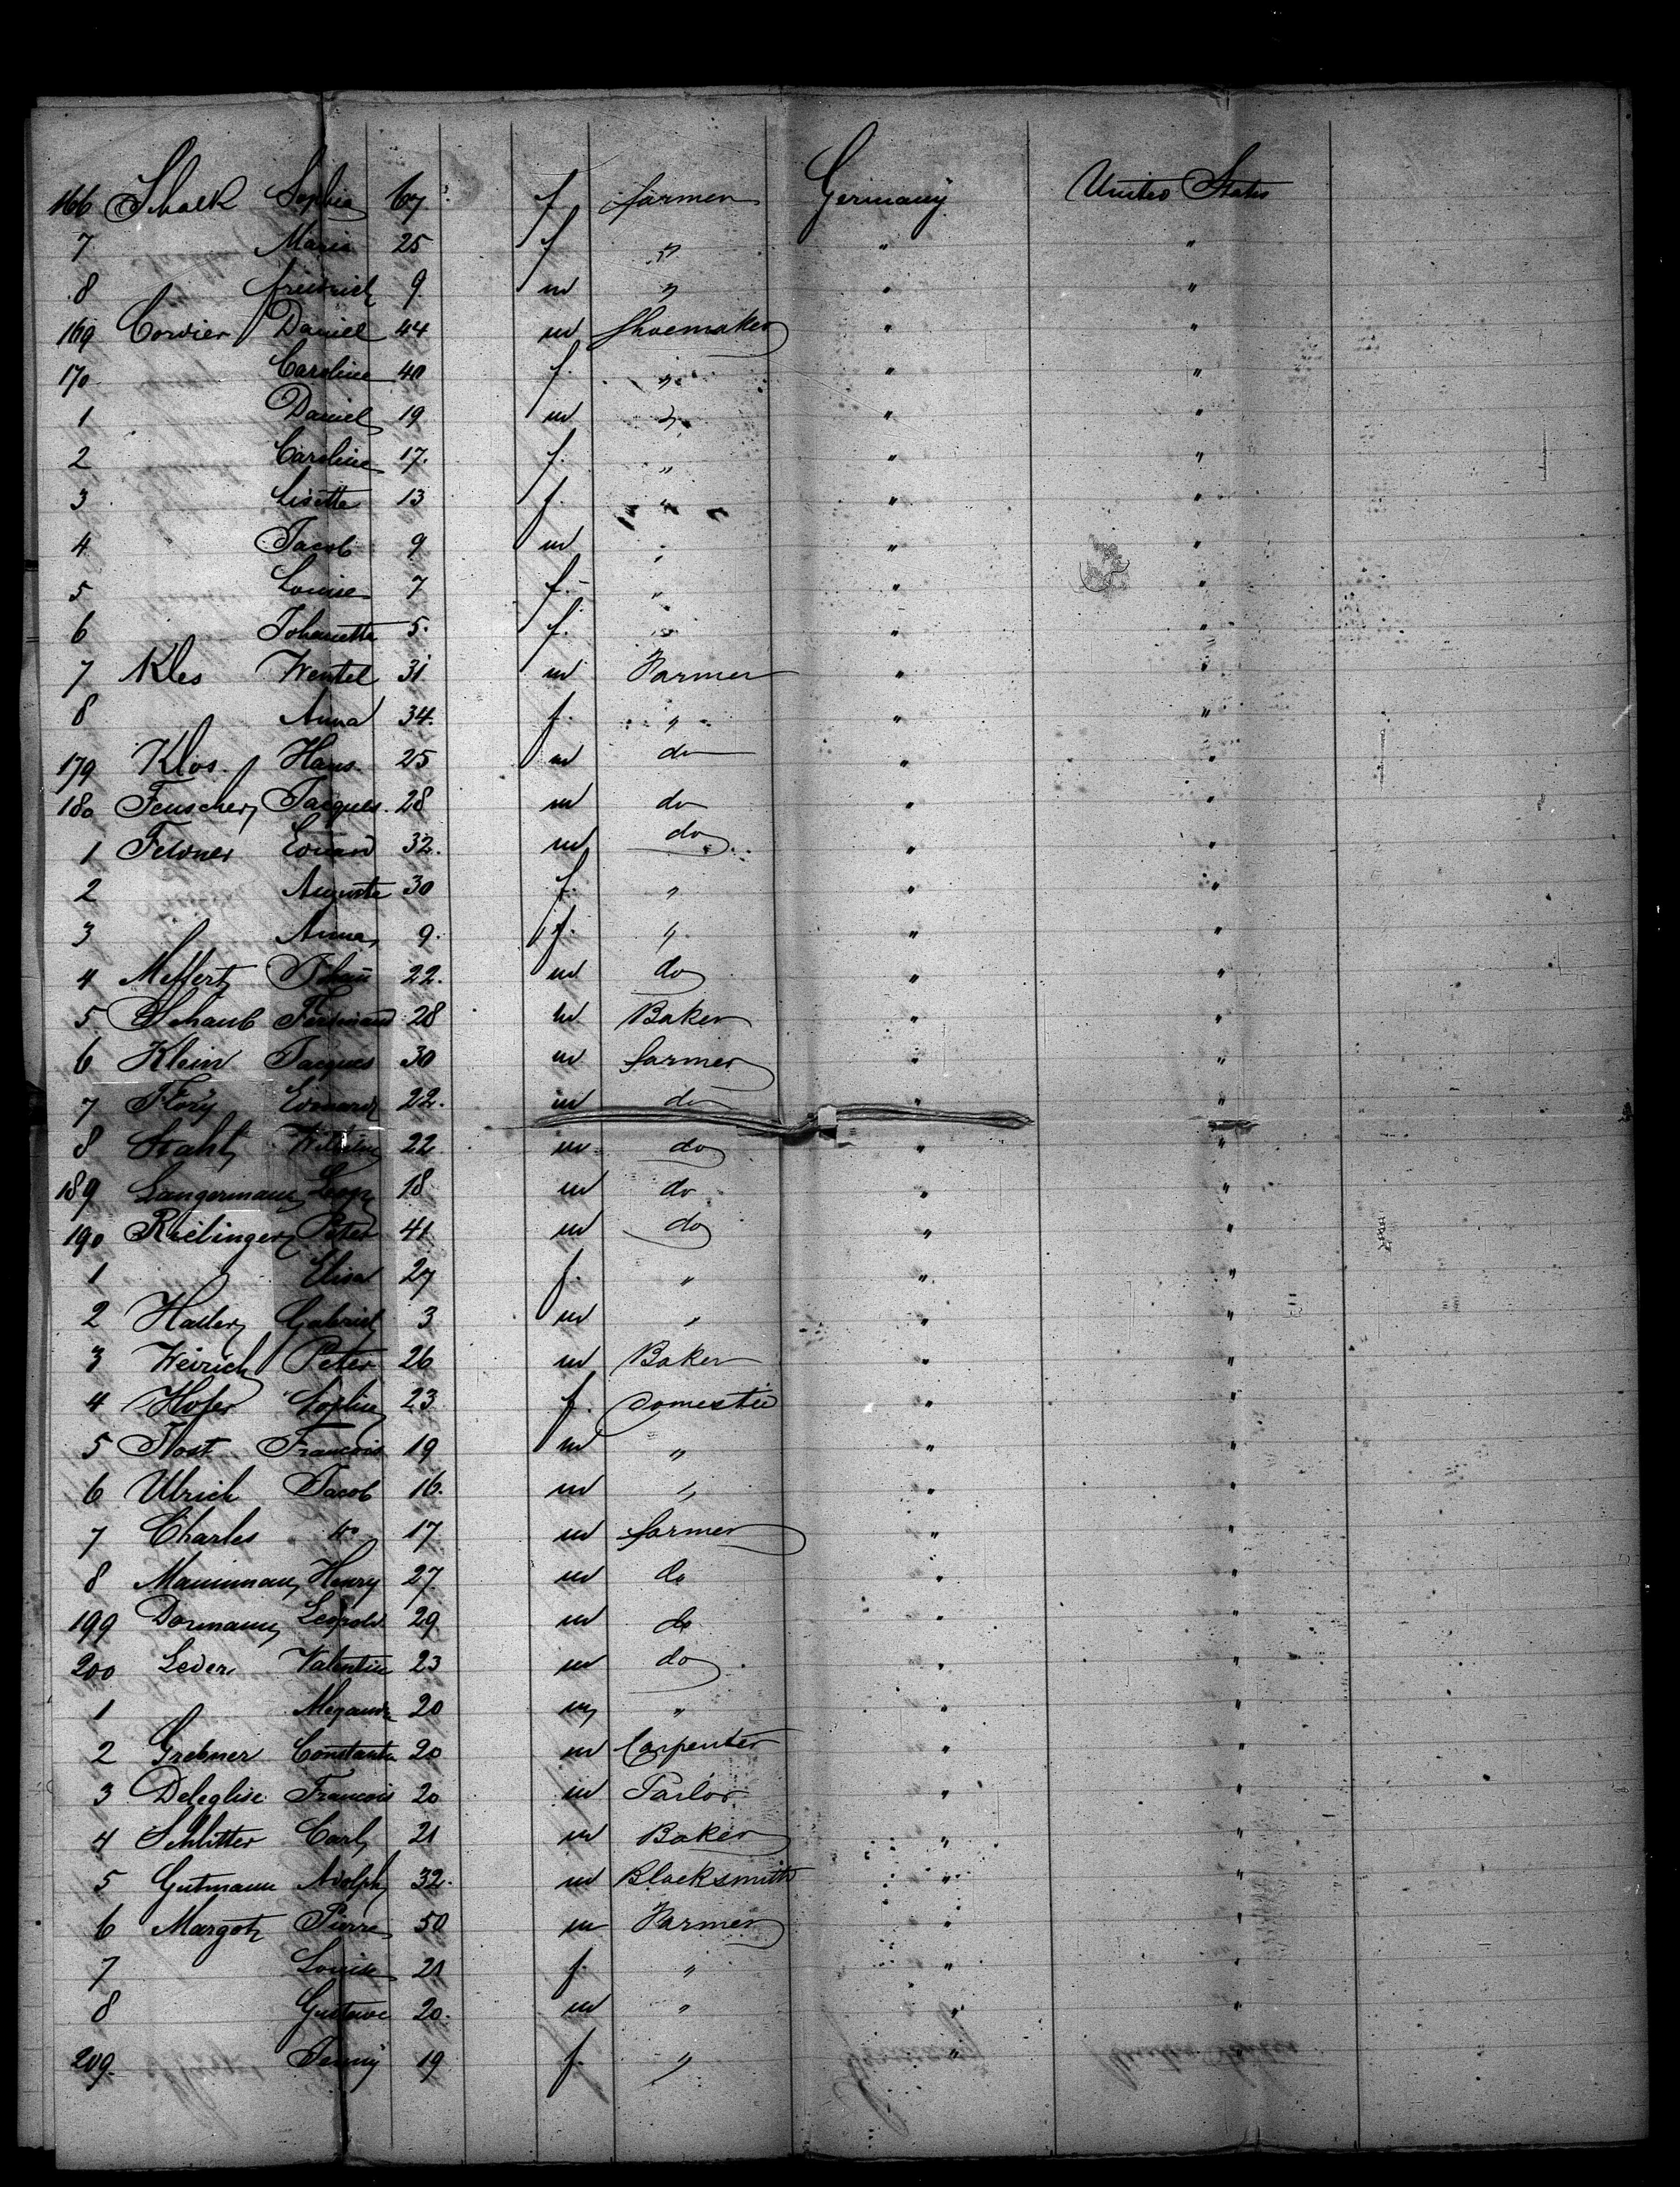 166 Schalk Sophia 67 f farmer Germany United States
7 Maria 25 f " " "
8 friedrich 9 m " " "
169 Cordier Daniel 44 m Shoemaker " "
170 Caroline 40 f. " " "
1 Daniel 19 m " " "
2 Caroline 17. f. " " "
3 Lisette 13 f. " " "
4 Jacob 9 m " " "
5 Louise 7 f. " " "
6 Johanetta 5. f. " " "
7 Kles Wentel 31 m Farmer " "
8 Anna 34. f. " " "
179 Klos Hans 25 m do " "
180 Feuscher Jacques. 28 m do " "
1 Feldner Eduard 32. m do " "
2 Auguste 30 f. " " "
3 Anna 9. f. " " "
4 Meffert Johañ 22. m do " "
5 Schaub Ferdinand 28 m. Baker " "
6 Klein Jacques 30 m farmer " "
7 Flory Edmard 22. m do " "
8 Stahl Wilhelm 22 m do " "
189 Langermann 18 m do " "
190 Rielinger Peter 41 m do " "
1 Elisa 27 f. " " "
2 Haller Gabriel 3 m " " "
3 Weirich Peter 26 m Baker " "
4 Hofer Sophie 23 f. Domestic " "
5 Jost Francois 19 m " " "
6 Ulrich Jacob 16. m " " "
7 Charles 17 m farmer " "
8 Henry 27 m do " "
199 Dormann Leopold 29 m do " "
200 Leder Valentin 23 m do " "
1 20 m " " "
2 Grebner Constantin 20 m Carpenter " "
3 Deleglise Francois 20 m Tailor " "
4 Schlitter Carl 21 m Baker " "
5 Gutmann Adolph 32. m Blacksmith " "
6 Margot Pierre 50 m Farmer " "
7 Louise 21 f. " " "
8 Gustave 20. m " " "
209. Jenny 19 f. " "